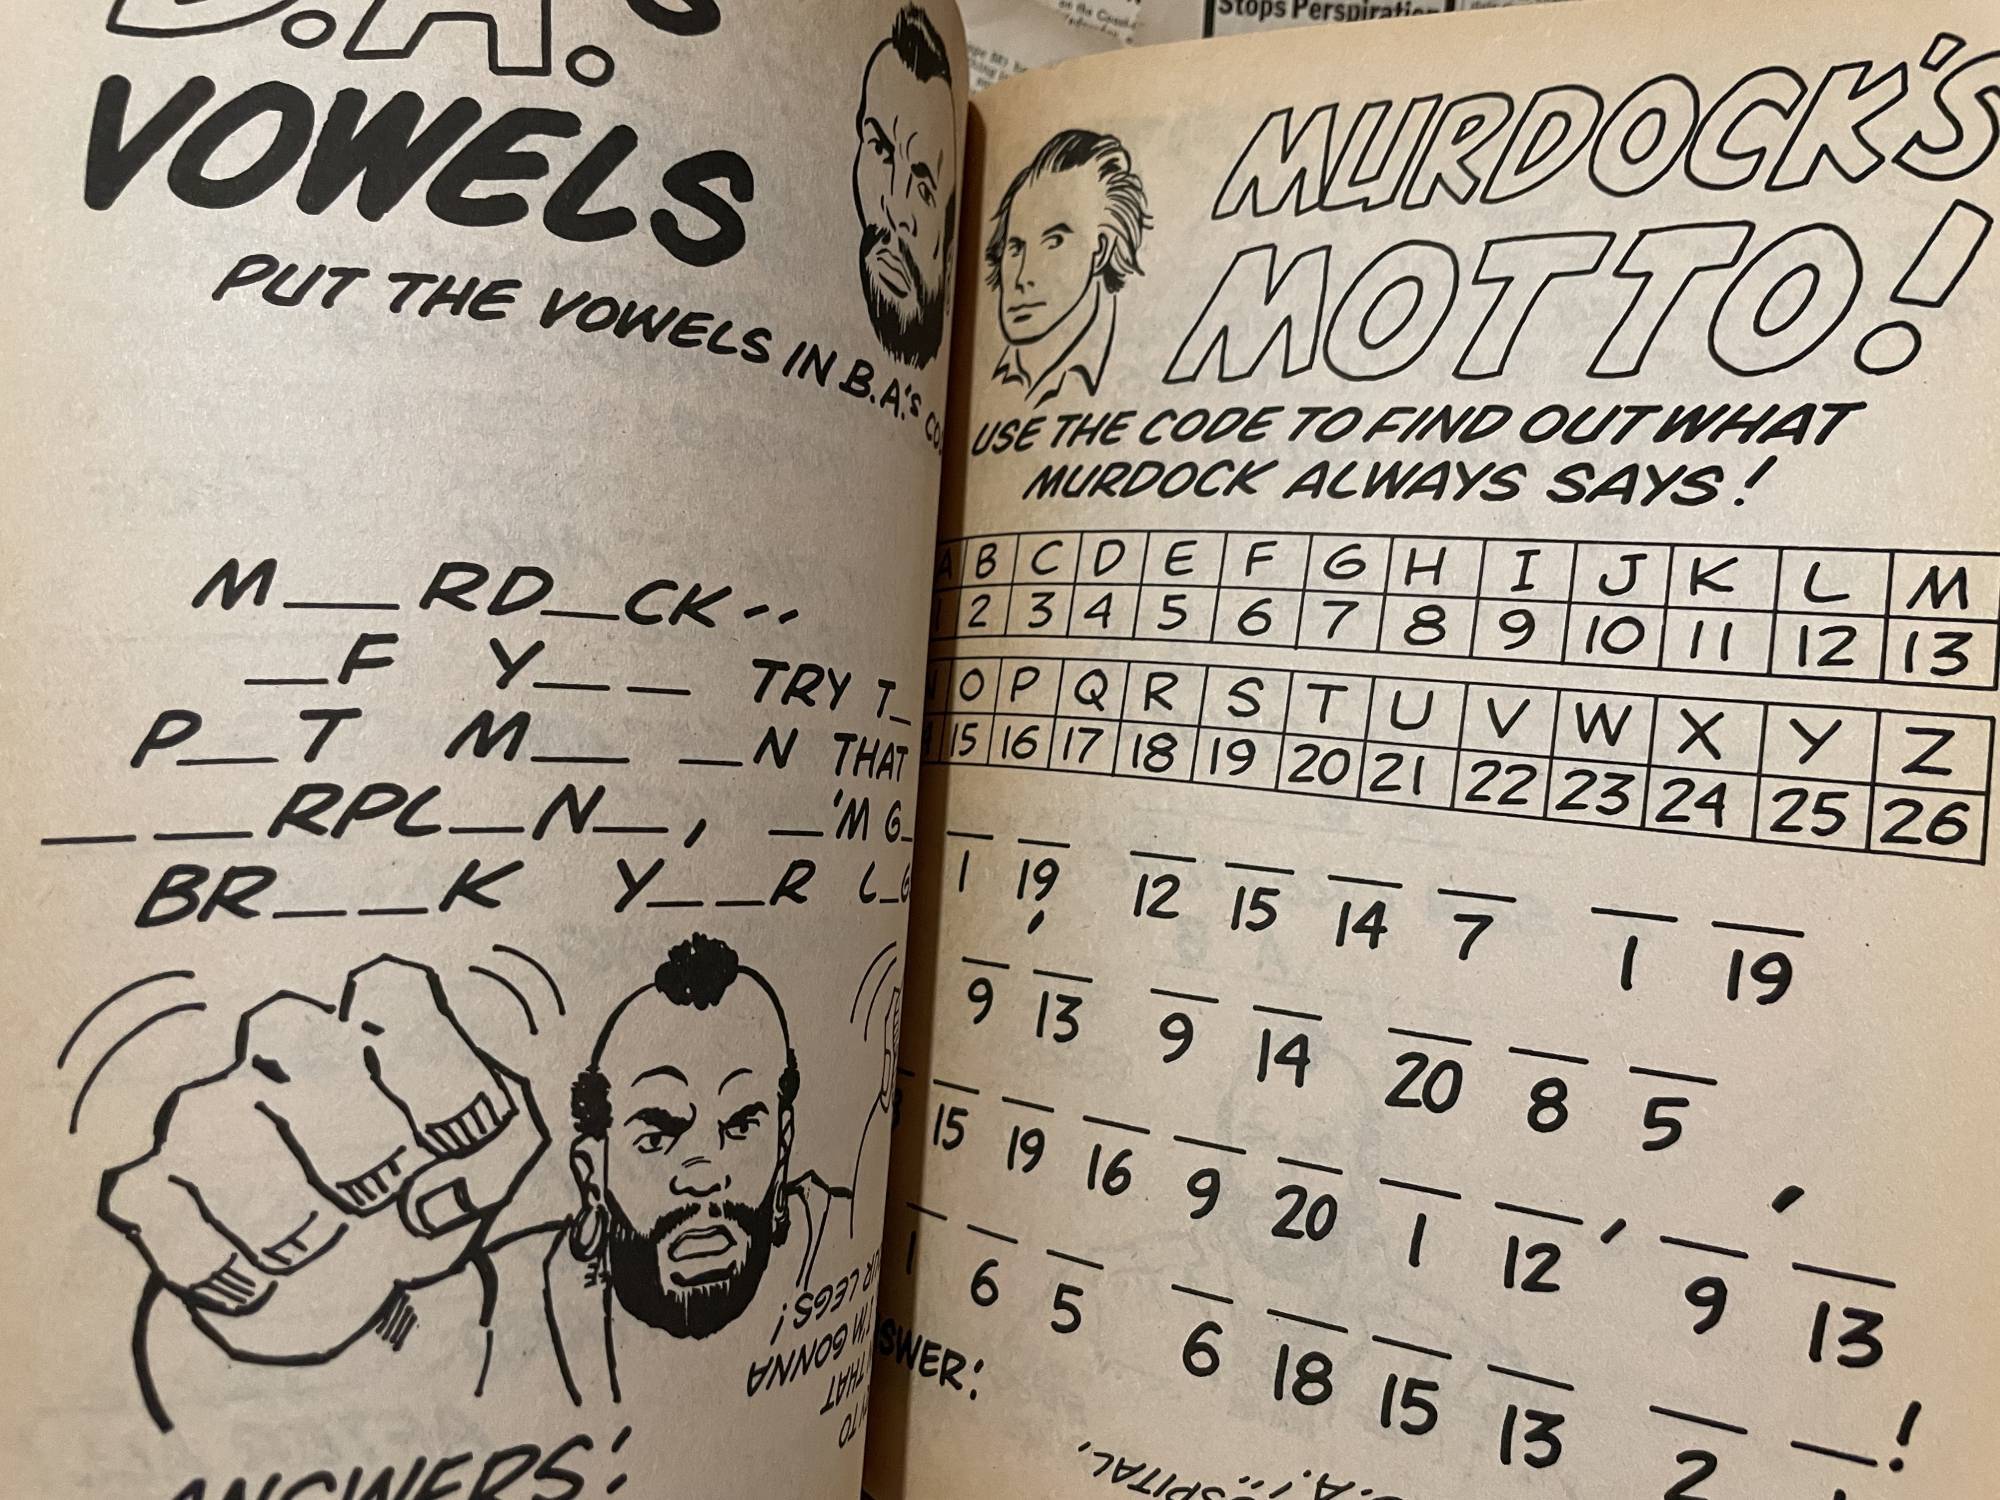 B.A.'s
VOWELS
PUT THE VOWELS IN B.A.'s
M__ RD__CK--
__F Y__ __ TRY T_
P__T M__ __N THAT
__ __RPL__N__, __'M G_
BR__ __K Y__ __R L_G
UR LEGS!
I'M GONNA
THAT
TO
ANSWERS:
Stops Perspiration
MURDOCK'S
MOTTO!
USE THE CODE TO FIND OUT WHAT
MURDOCK ALWAYS SAYS!
A B C D E F G H I J K L M
1 2 3 4 5 6 7 8 9 10 11 12 13
O P Q R S T U V W X Y Z
15 16 17 18 19 20 21 22 23 24 25 26
1 19 12 15 14 7 1 19
9 ' 13 9 14 20 8 5
15 19 16 9 20 1 12 , 9 ' 13
1 6 5 6 18 15 13 2 !
SWER:
SPITAL,
.A.!